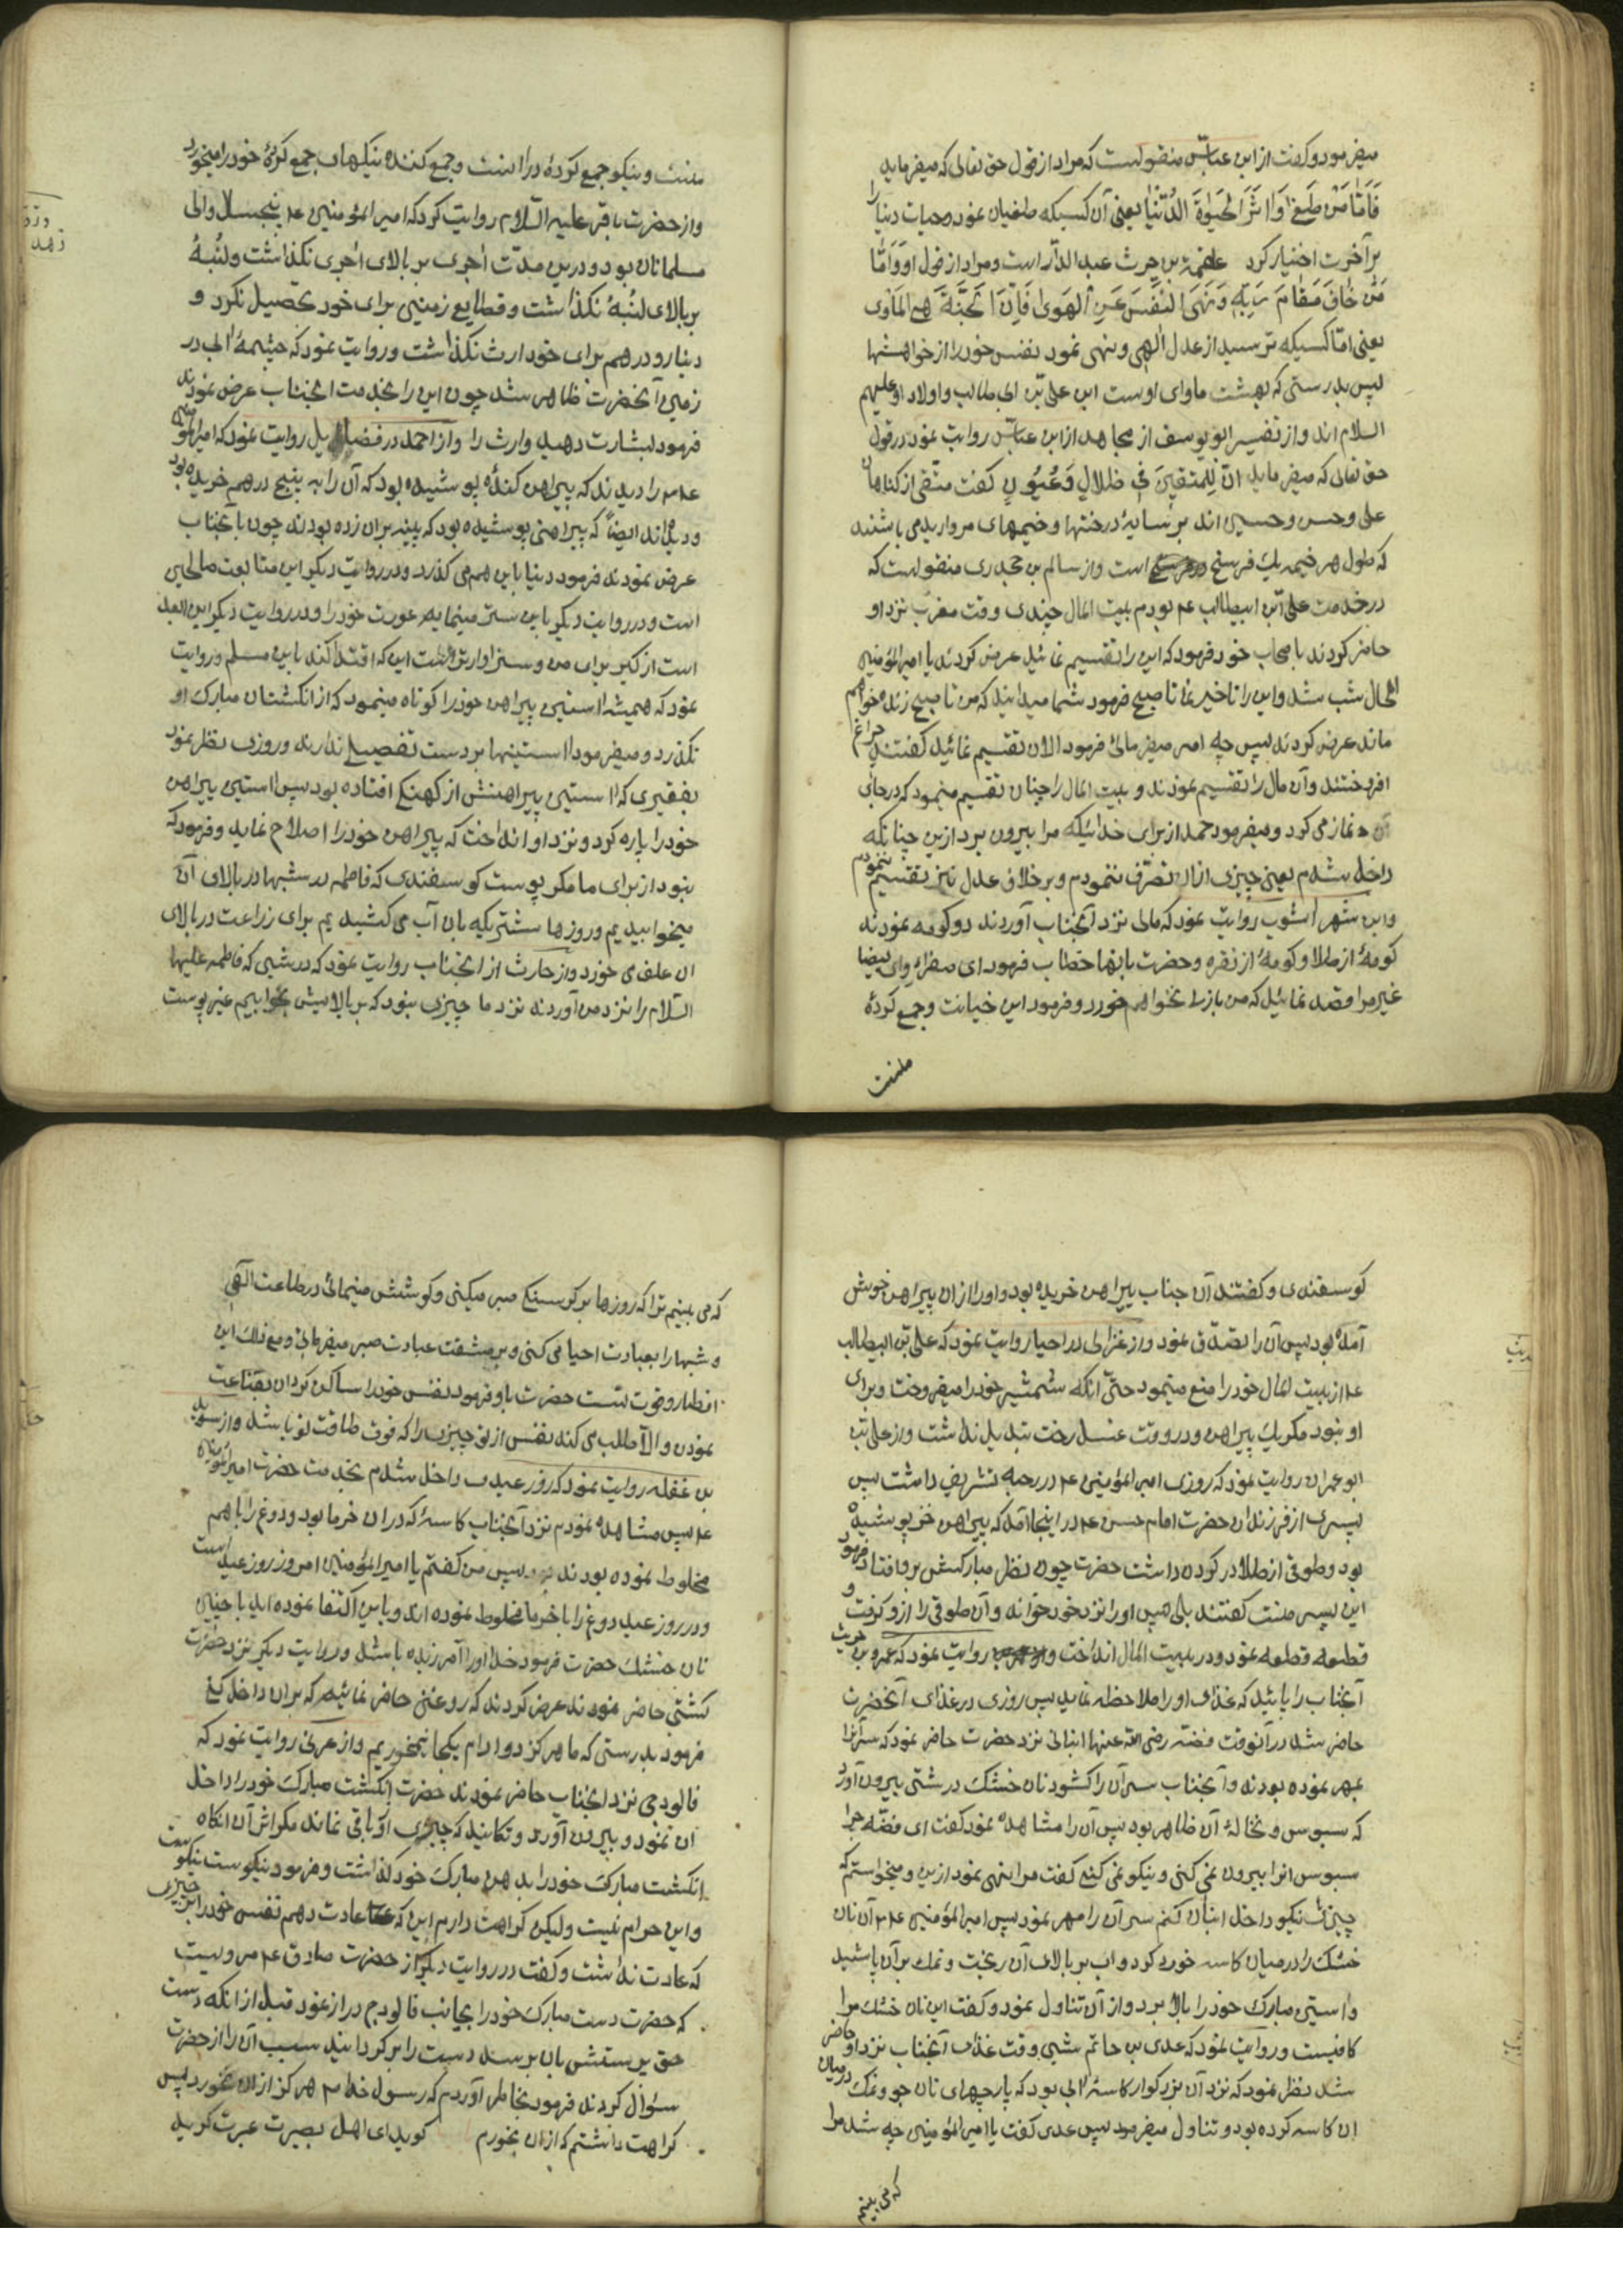 میفرمود و گفت از ابن عباس منقولست که مراد از قول حق تعالی که میفرماید
فَاَمّا مَنْ طَغیٰ وَاٰثَرَ الْحَیوٰةَ الدُّنْیٰا یعنی آن کسیکه طغیان نمود و حیات دنیا را
بر آخرت اختیار کرد علقمة بن حرث عبد الدار است و مراد از قول او وَ اَمّا
مَنْ خٰافَ مَقٰامَ رَبِّهِ وَ نَهَی النَّفْسَ عَنِ الْهَویٰ فَاِنَّ الْجَنَّةَ هِیَ الْمَأْویٰ
یعنی اما کسیکه ترسید از عدل الٰهی و نهی نمود نفس خود را از خواهشها
پس بدرستی که بهشت ماوای اوست ابن علی بن ابی طالب و اولاد او علیهم
السلام اند و از تفسیر ابو یوسف از مجاهد از ابن عباس روایت نمود در قول
حق تعالی که میفرماید اِنَّ لِلْمُتَّقینَ فی ظِلالٍ وَ عُیُونٍ گفت متّقی از گناهان
علی و حسن و حسین اند بر سایهٔ درختها و خیمهای مروارید می باشند
که طول هر خیمه یک فرسخ در فرسخ است و از سالم بن جحدری منقولست که
در خدمت علی بن ابیطالب ع م بودم بیت المال چیزی وقت مغرب نزد او
حاضر کردند باصحاب خود فرمود که این را تقسیم نمائید عرض کردند یا امیر المؤمنین
الحال شب شد و این را تاخیر نما تا صبح فرمود شما میدانید که من تا صبح زنده خواهم
ماند عرض کردند پس چه امر میفرمائی فرمود الان تقسیم نمائید گفتند چراغ
افروختند و آن مال را تقسیم نمودند و بیت المال را چنان تقسیم مینمود که در جای
آن نماز می کرد و میفرمود حمد از برای خدائیکه مرا بیرون برد ازین چنانکه
داخل شدم یعنی چیزی از ان تصرف ننمودم و بر خلاف عدل نیز تقسیم ننمودم
و ابن شهر اشوب روایت نمود که مالی نزد آنجناب آوردند دو کومه نمودند
کومهٔ از طلا و کومهٔ از نقره و حضرت بانها خطاب فرمود ای صفراء و ای بیضا
غیر مرا قصد نمائید که من بازی نخواهم خورد و فرمود این خیانت و جمع کردهٔ
منست
منست و نیکو جمع کردهٔ در اینست و جمع کننده نیکها جمع کردهٔ خود را میخورد
و از حضرت باقر علیه السلام روایت کرد که امیر المؤمنین ع م پنجسال والی
مسلمانان بود و درین مدّت اجری بر بالای اجری نگذاشت و لبنهٔ
بر بالای لبنهٔ نگذاشت و قطایع زمینی برای خود تحصیل نکرد و
دینار و درهم برای خود ارث نگذاشت و روایت نمود که چشمهٔ آبی در
زمین آنحضرت ظاهر شد چون این را بخدمت انجناب عرض نمودند
فرمود بشارت دهید وارث را و از احمد در فضایل روایت نمود که امیر المؤمنین
ع م را دیدند که پیراهن کندهٔ پوشیده بود که آن را به پنج درهم خریده بود
و دیده اند ایضاً که پیراهنی پوشیده بود که پینه بران زده بودند چون بآنجناب
عرض نمودند فرمود دنیا باین هم می گذرد و در روایت دیگر این متابعت صالحین
است و در روایت دیگر باین ستر مینمایم عورت خود را و در روایت دیگر این ابعد
است از کبر برای من و سزاوارتر است این که اقتدا کند باین مسلم و روایت
نمود که همیشه استین پیراهن خود را کوتاه مینمود که از انگشتان مبارک او
نگذرد و میفرمود استینها بر دست تفصیلی ندارند و روزی نظر نمود
بفقیری که استین پیراهنش از کهنگی افتاده بود پس استین پیراهن
خود را پاره کرد و نزد او انداخت که پیراهن خود را اصلاح نماید و فرمود که
نبود از برای ما مگر پوست گوسفندی که فاطمه در شبها در بالای آن
میخوابیدیم و روزها شتریکه بان آب می کشیدیم برای زراعت در بالای
ان علف می خورد و از حارث از انجناب روایت نمود که در شبی که فاطمه علیها
السّلام را نزد من آوردند نزد ما چیزی نبود که بر بالایش بخوابیم غیر پوست
گوسفندی و گفتند آن جناب پیراهن خریده بود و او را از ان پیراهن خوش
آمده بود پس آن را تصدّق نمود و از غزالی در احیا روایت نمود که علی بن ابیطالب
ع م از بیت المال خود را منع مینمود حتّی آنکه شمشیر خود را میفروخت و برای
او نبود مگر یک پیراهن و در وقت غسل رخت تبدیل نداشت و از علی بن
ابو عمران روایت نمود که روزی امیر المؤمنین ع م در رحبه تشریف داشت پس
پسری از فرزندان حضرت امام حسن ع م در اینجا آمد که پیراهن خز پوشیده
بود و طوقی از طلا در گردن داشت حضرت چون نظر مبارکش برو افتاد فرمود
این پسر منست گفتند بلی پس او را نزد خود خوانده و آن طوق را ازو گرفت و
قطعه قطعه نمود و در بیت المال انداخت و روایت نمود که عمرو بن حریث
آنجناب را پائید که غذای او را ملاحظه نماید پس روزی در غذای آنحضرت
حاضر شد در آنوقت فضّه رضی الله عنها انبانی نزد حضرت حاضر نمود که سر آنرا
مهر نموده بودند و آنجناب سر آن را گشود نان خشک درشتی بیرون آورد
که سبوس و نخالهٔ آن ظاهر بود پس آن را مشاهده نمود گفت ای فضّه چرا
سبوس انرا بیرون نمی کنی و نیکو نمی کنی گفت مرا نهی نمود ازین و میخواستم که
چیزی نیکو داخل انبان کنم سر آن را مهر نمود پس امیر المؤمنین ع م آن نان
خشک را در میان کاسه خورد کرد و اب بر بالای آن ریخت و نمک بر آن پاشید
و استین مبارک خود را بالا برد و از آن تناول نمود و گفت این نان خشک مرا
کافیست و روایت نمود که عدی بن حاتم شبی وقت غذای آنجناب نزد او حاضر
شد نظر نمود که نزد آن بزرگوار کاسهٔ آبی بود که پارچهای نان جو و نمک در میان
ان کاسه کرده بود و تناول میفرمود پس عدی گفت یا امیر المؤمنین چه شد مرا
که می بینم
که می بینم ترا که روزها بر گرسنگی صبر میکنی و کوشش مینمائی در طاعت الٰهی
و شبها را بعبادت احیا می کنی و بر مشقت عبادت صبر میفرمائی و مع ذلک این
افطار و قوت تست حضرت باو فرمود نفس خود را ساکن گردان بقناعت
نمودن و الّا طلب می کند نفس از تو چیزی را که فوق طاقت تو باشد و از سوید
بن غفله روایت نمود که روز عیدی داخل شدم بخدمت حضرت امیر المؤمنین
ع م پس مشاهده نمودم نزد آنجناب کاسهٔ که در ان خرما بود و دوغ را باهم
مخلوط نموده بودند پس من گفتم یا امیر المؤمنین امروز روز عید است
و در روز عید دوغ را با خرما مخلوط نموده اند و باین اکتفا نموده اید با چنین
نان خشک حضرت فرمود خدا اورا آمرزنده باشد و در روایت دیگر نزد حضرت
کشتی حاضر نمودند عرض کردند که روغنی حاضر نمائیم که بران داخل کنی
فرمود بدرستی که ما هرگز دو ادام یکجا نمیخوریم و از عرنی روایت نمود که
فالودجی نزد انجناب حاضر نمودند حضرت انگشت مبارک خود را داخل
ان نمود و بیرون آورد و تکانید که چیزی از او باقی نماند مگر اثر آن انگاه
انگشت مبارک خود را بدهن مبارک خود گذاشت و فرمود نیکوست نیکوست
و این حرام نیست ولیکن کراهت دارم این که عادت دهم نفس خود را بر چیزی
که عادت نداشت و گفت در روایت دیگر از حضرت صادق ع م مرویست
که حضرت دست مبارک خود را بجانب فالودج دراز نمود قبل از انکه دست
حق پرستش بان برسد دست را بر گردانید سبب آن را از حضرت
سؤال کردند فرمود بخاطر آوردم که رسول خدا ص هرگز از ان نخورد پس
کراهت داشتم که از ان بخورم گوید ای اهل بصیرت عبرت گیرید